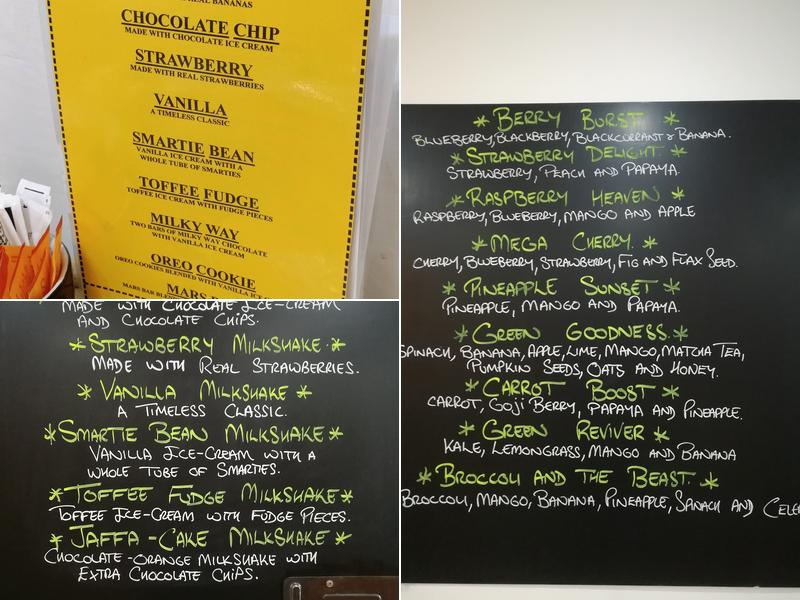 REAL BANANAS
CHOCOLATE CHIP
MADE WITH CHOCOLATE ICE CREAM
STRAWBERRY
MADE WITH REAL STRAWBERRIES
VANILLA
A TIMELESS CLASSIC
SMARTIE BEAN
VANILLA ICE CREAM WITH A
WHOLE TUBE OF SMARTIES
TOFFEE FUDGE
TOFFEE ICE CREAM WITH FUDGE PIECES
MILKY WAY
TWO BARS OF MILKY WAY CHOCOLATE
WITH VANILLA ICE CREAM
OREO COOKIE
OREO COOKIES BLENDED WITH VANILLA ICE
MARS
MARS BAR
MADE WITH CHOCOLATE ICE-CREAM
AND CHOCOLATE CHIPS.
* STRAWBERRY MILKSHAKE *
MADE WITH REAL STRAWBERRIES.
* VANILLA MILKSHAKE *
A TIMELESS CLASSIC.
* SMARTIE BEAN MILKSHAKE *
VANILLA ICE-CREAM WITH A
WHOLE TUBE OF SMARTIES.
* TOFFEE FUDGE MILKSHAKE *
TOFFEE ICE-CREAM WITH FUDGE PIECES.
* JAFFA-CAKE MILKSHAKE *
CHOCOLATE-ORANGE MILKSHAKE WITH
EXTRA CHOCOLATE CHIPS.
* BERRY BURST *
BLUEBERRY, BLACKBERRY, BLACKCURRANT & BANANA.
* STRAWBERRY DELIGHT *
STRAWBERRY, PEACH AND PAPAYA.
* RASPBERRY HEAVEN *
RASPBERRY, BLUEBERRY, MANGO AND APPLE
* MEGA CHERRY. *
CHERRY, BLUEBERRY, STRAWBERRY, FIG AND FLAX SEED.
* PINEAPPLE SUNSET *
PINEAPPLE, MANGO AND PAPAYA.
* GREEN GOODNESS. *
SPINACH, BANANA, APPLE, LIME, MANGO, MATCHA TEA,
PUMPKIN SEEDS, OATS AND HONEY.
* CARROT BOOST *
CARROT, GOJI BERRY, PAPAYA AND PINEAPPLE.
* GREEN REVIVER *
KALE, LEMONGRASS, MANGO AND BANANA
* BROCCOLI AND THE BEAST. *
BROCCOLI, MANGO, BANANA, PINEAPPLE, SPINACH AND CELE